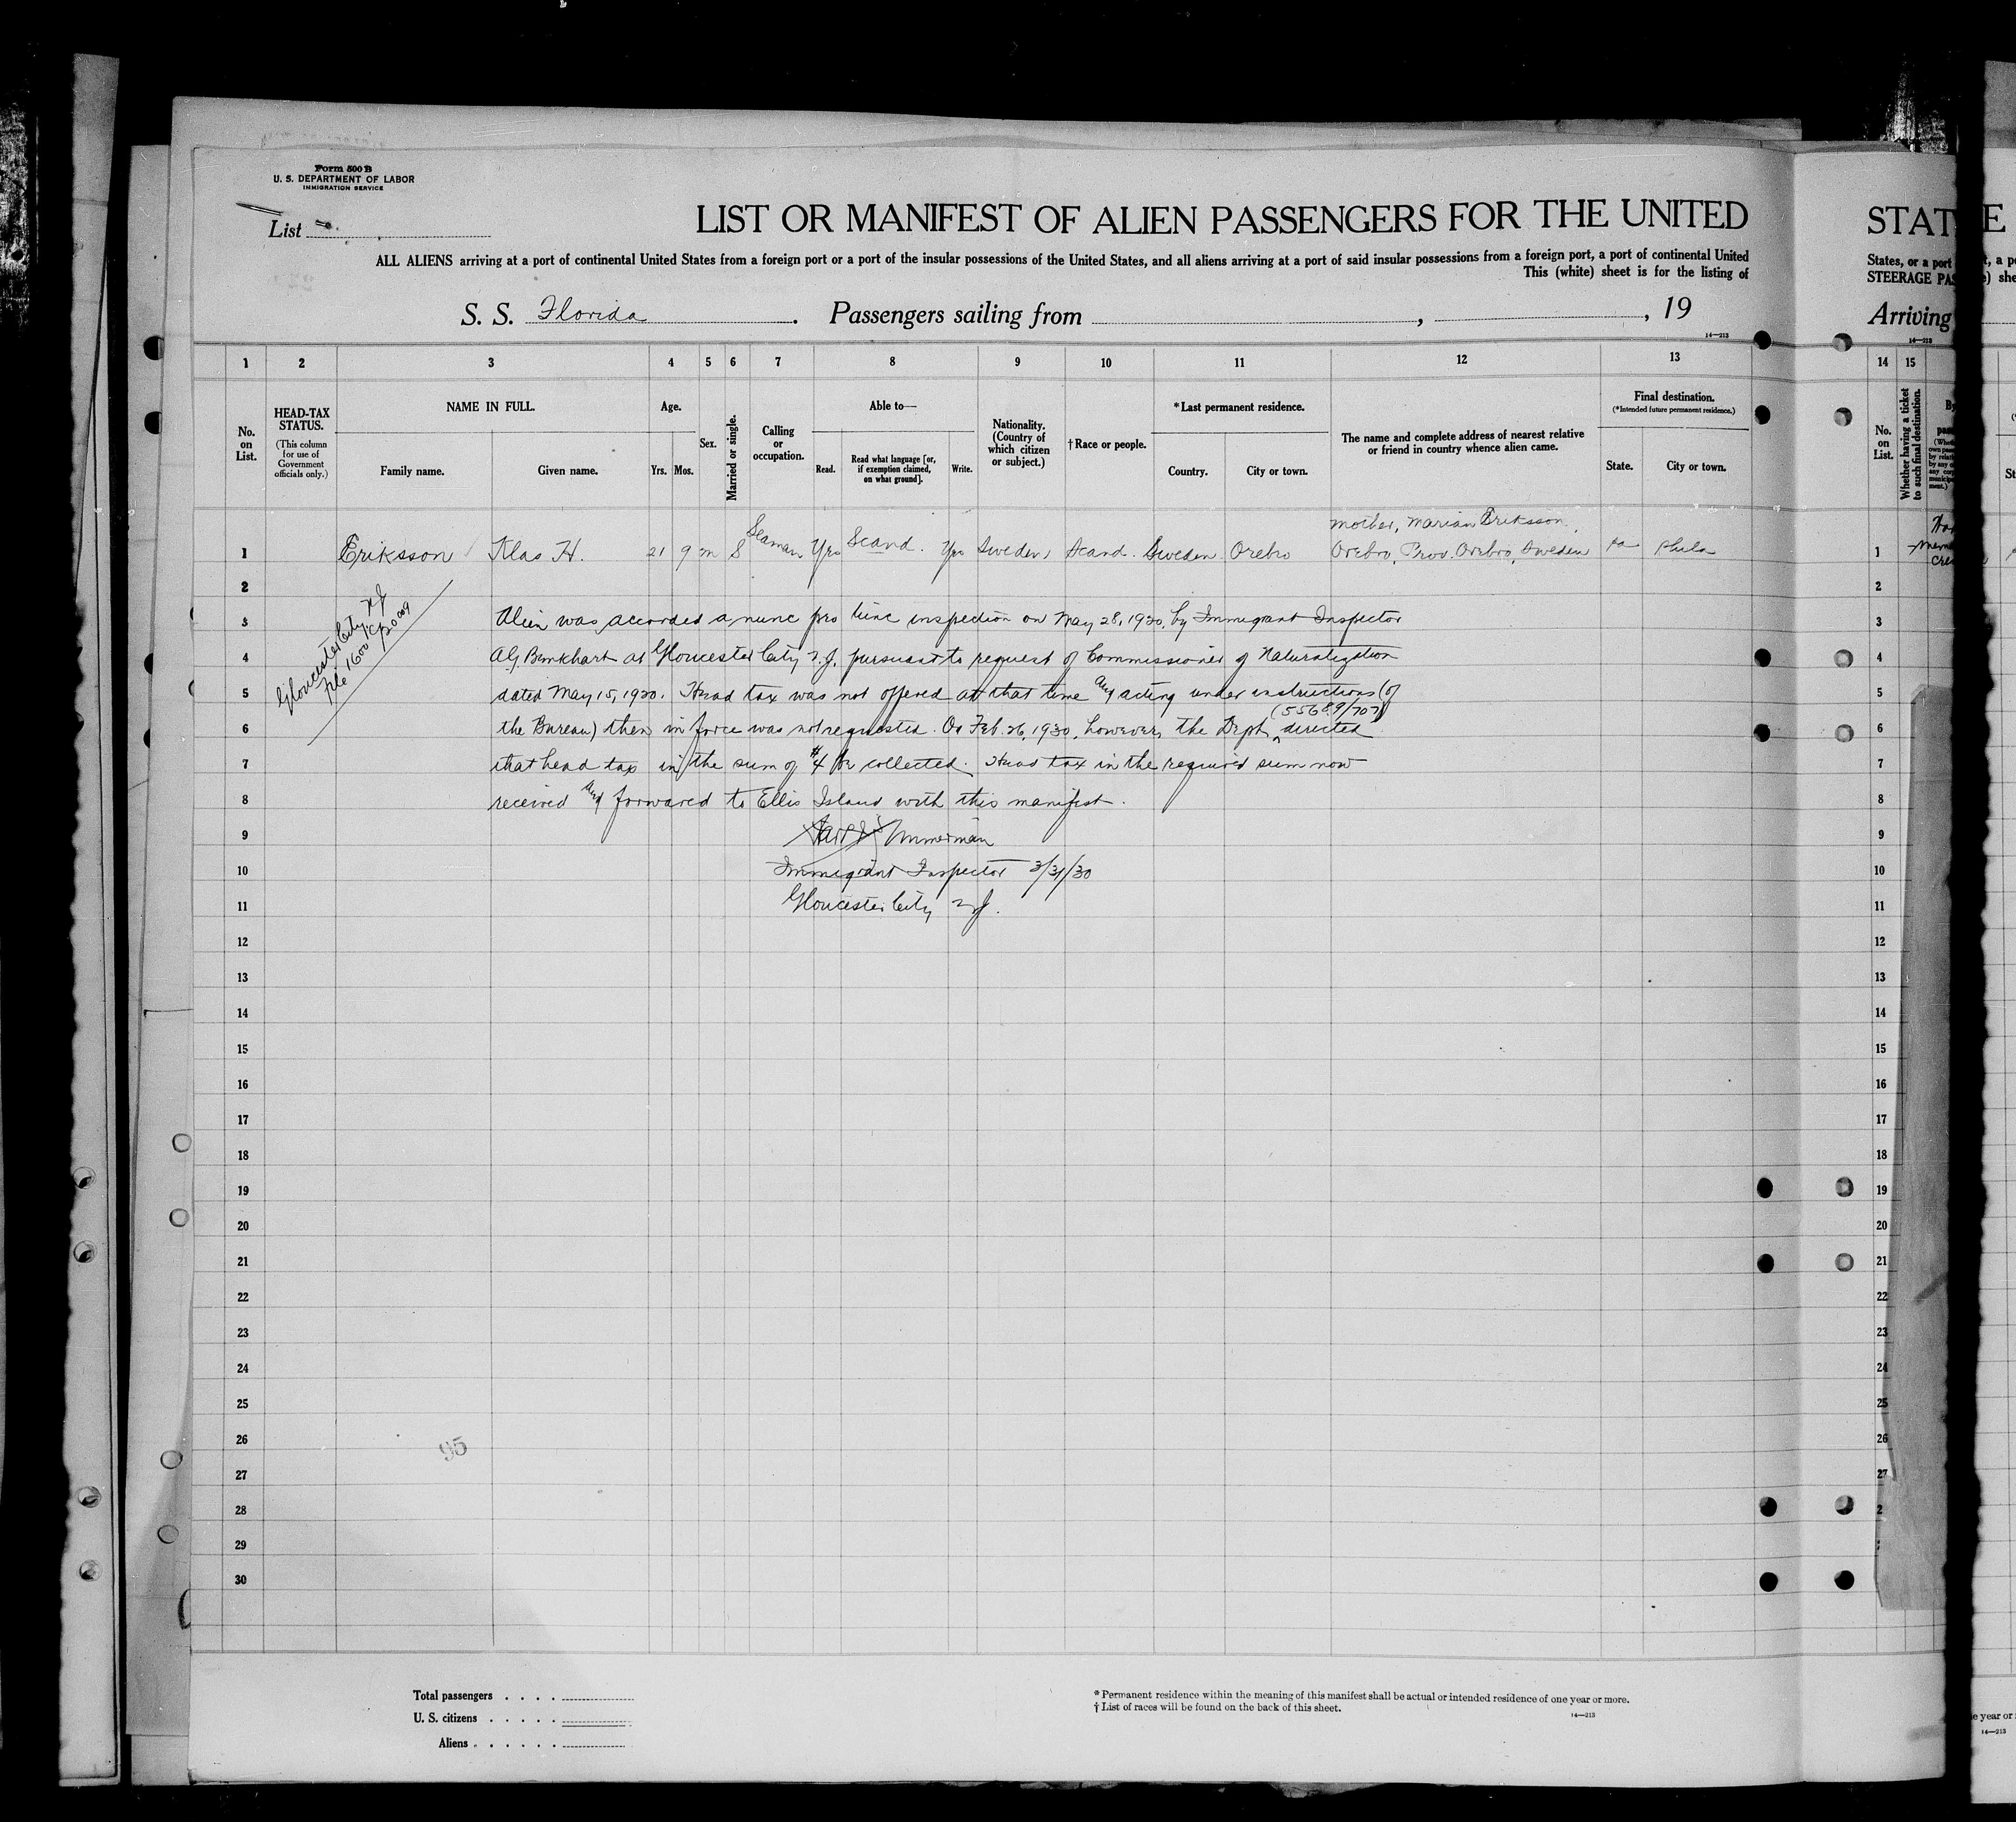 Form 500 B
U. S. DEPARTMENT OF LABOR
IMMIGRATION SERVICE
List
LIST OR MANIFEST OF ALIEN PASSENGERS FOR THE UNITED
ALL ALIENS arriving at a port of continental United States from a foreign port or a port of the insular possessions of the United States, and all aliens arriving at a port of said insular possessions from a foreign port, a port of continental United
This (white) sheet is for the listing of
S. S. Florida. Passengers sailing from , , 19
14—213
1 2 3 4 5 6 7 8 9 10 11 12 13
No. on List.
HEAD-TAX STATUS.
(This column for use of Government officials only.)
NAME IN FULL.
Family name. Given name.
Age.
Yrs. Mos.
Sex.
Married or single.
Calling or occupation.
Able to—
Read. Read what language [or, if exemption claimed, on what ground]. Write.
Nationality. (Country of which citizen or subject.)
†Race or people.
*Last permanent residence.
Country. City or town.
The name and complete address of nearest relative or friend in country whence alien came.
Final destination.
(*Intended future permanent residence.)
State. City or town.
mother, Marian Eriksson,
1 Eriksson Klas H. 21 9 m S Seaman Yes Scand. Yes Sweden Scand. Sweden Orebro Orebro, Prov. Orebro, Sweden Pa Phila
2
Gloucester City NJ
File 1600
3 Alien was accorded a nunc pro tunc inspection on May 28, 1920, by Immigrant Inspector
4 at Gloucester City N.J. pursuant to request of Commissioner of Naturalization
5 dated May 15, 1920. Head tax was not offered at that time and acting under instructions (of
(55689/707)
6 the Bureau) then in force was not requested. On Feb. 26, 1930, however, the Dept. directed
7 that head tax in the sum of $4 be collected. Head tax in the required sum now
8 received and forwarded to Ellis Island with this manifest.
9 Zimmerman
10 Immigrant Inspector 3/31/30
11 Gloucester City NJ.
12
13
14
15
16
17
18
19
20
21
22
23
24
25
26
95
27
28
29
30
Total passengers
U. S. citizens
Aliens
* Permanent residence within the meaning of this manifest shall be actual or intended residence of one year or more.
† List of races will be found on the back of this sheet.
14—213
STAT
States, or a port
STEERAGE PAS
Arriving
14—213
14 15
No. on List.
Whether having a ticket to such final destination.
1
2
3
4
5
6
7
8
9
10
11
12
13
14
15
16
17
18
19
20
21
22
23
24
25
26
27
e year or
14—213